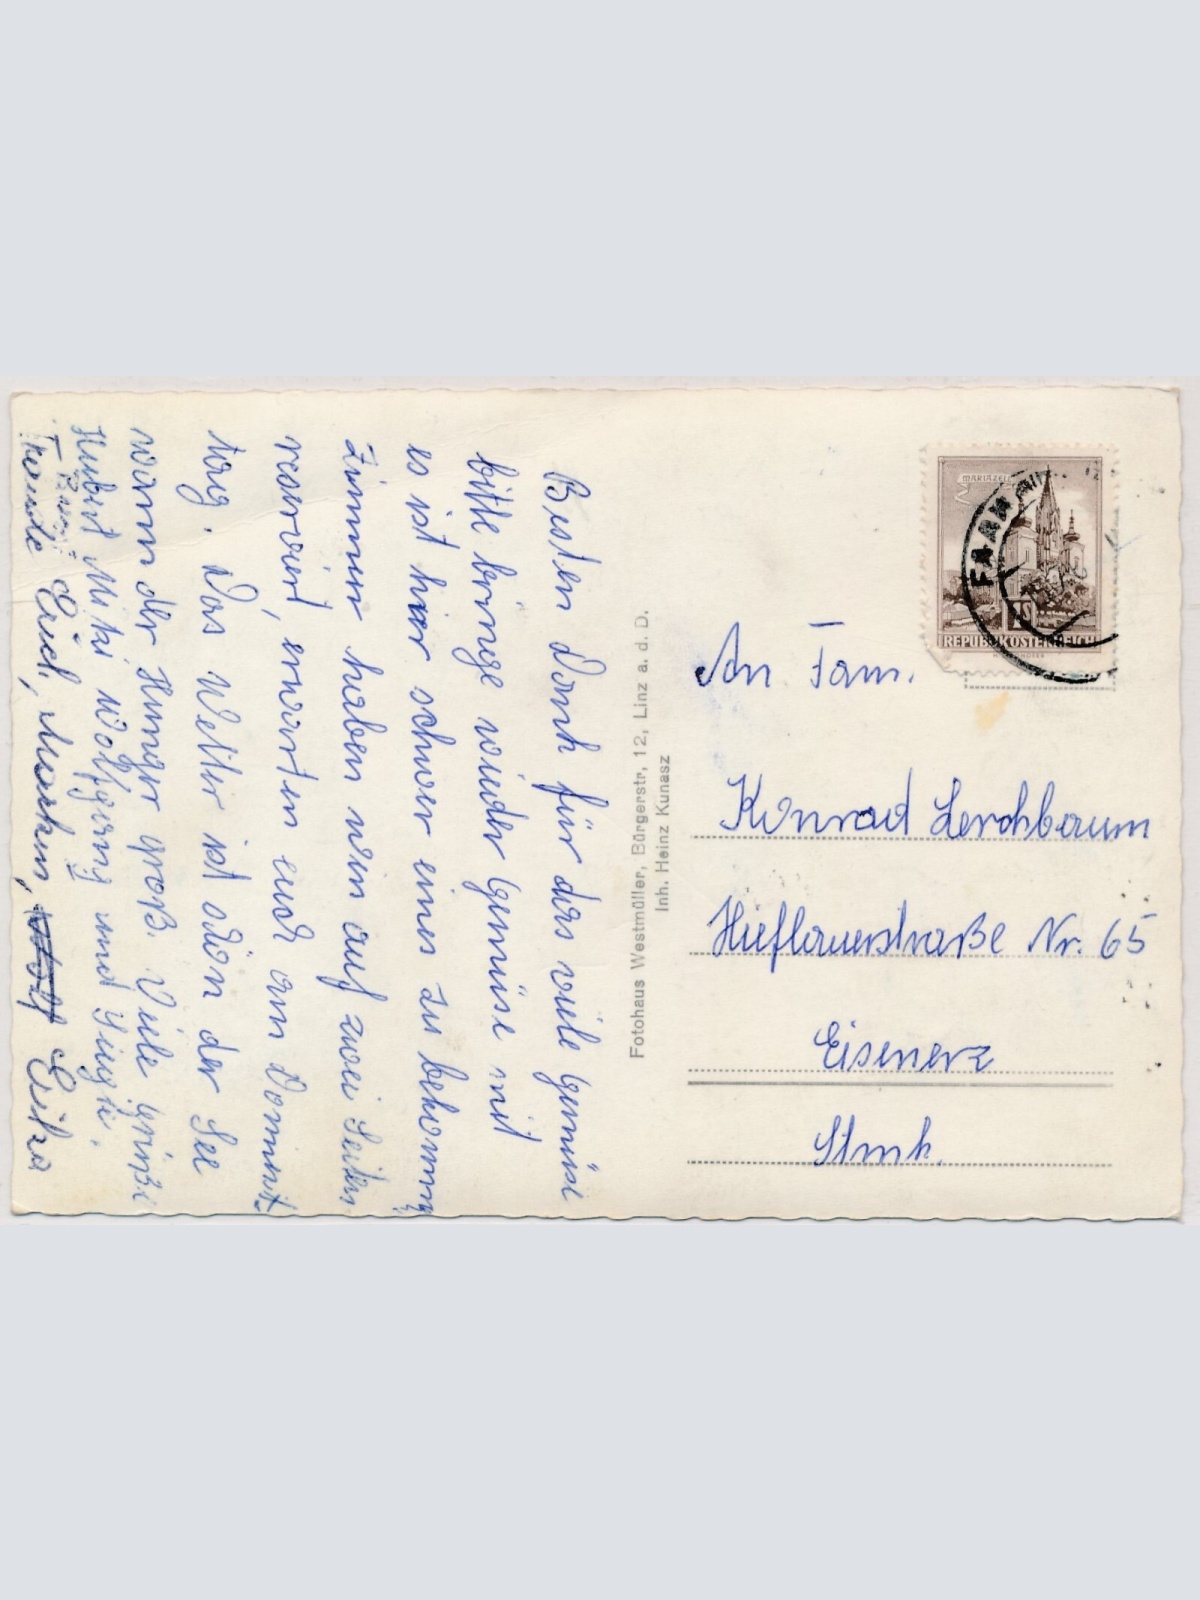 Besten Dank für das viele Gemüse
bitte bringe wieder Gemüse mit
es ist hier schwer eines zu bekomm
Zimmer haben wir auf zwei Seiten
reserviert, erwarten euch am Donners-
tag. Das Wetter ist oben der See
warm der Hunger groß. Viele Grüße
Hubert Mitzi Wolfgang und Siegfr.
Traude Erich, Markus, Erika
Fotohaus Westmüller, Bürgerstr, 12, Linz a. d. D.
Inh. Heinz Kunasz
MARIAZELL
1 S
REPUBLIK ÖSTERREICH
An Fam.
Konrad Lerchbaum
Hieflauerstraße Nr. 65
Eisenerz
Stmk.